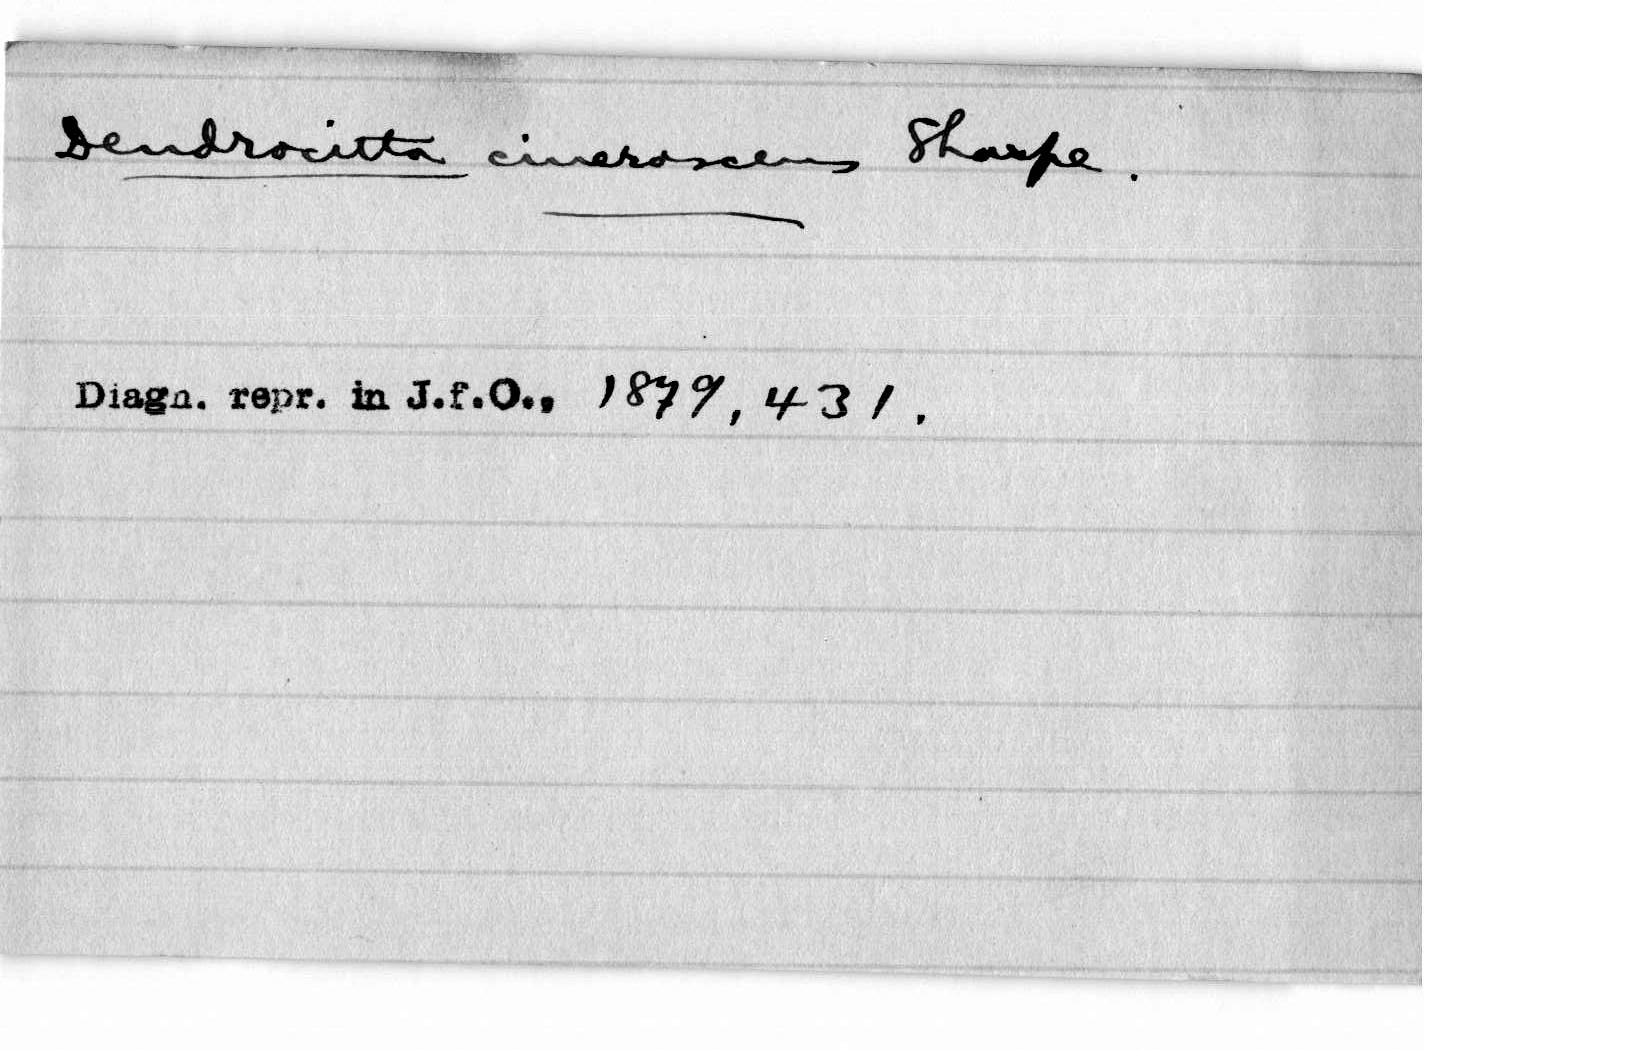 Dendrocitta cinerascens Sharpe.
Diagn. repr. in J.f.O., 1879, 431.